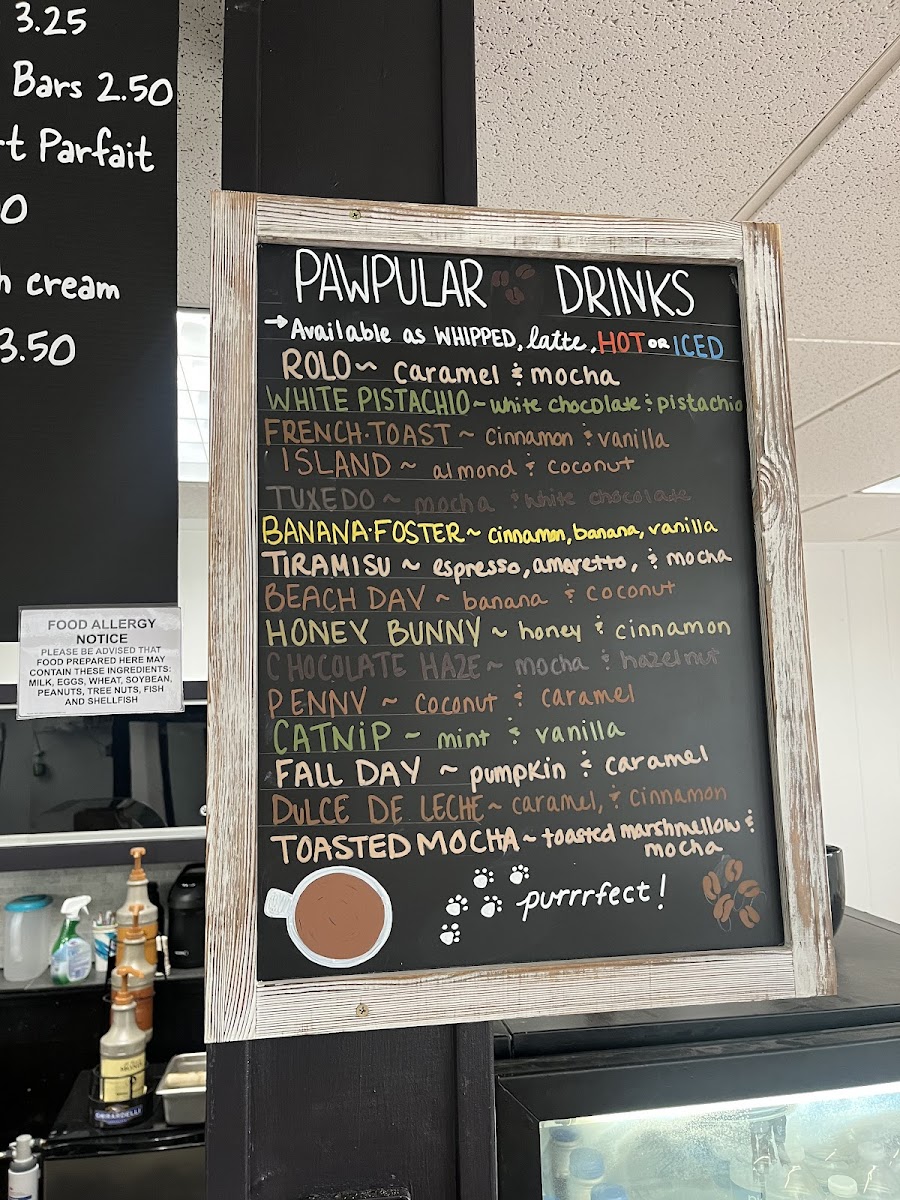 3.25
Bars 2.50
t Parfait
0
h cream
3.50
PAWPULAR DRINKS
→ Available as WHIPPED, latte, HOT OR ICED
ROLO~ caramel & mocha
WHITE PISTACHIO~white chocolate & pistachio
FRENCH·TOAST ~ cinnamon & vanilla
ISLAND ~ almond & coconut
TUXEDO ~ mocha & white chocolate
BANANA·FOSTER~ cinnamon, banana, vanilla
TIRAMISU ~ espresso, amaretto, & mocha
BEACH DAY ~ banana & coconut
HONEY BUNNY ~ honey & cinnamon
CHOCOLATE HAZE~ mocha & hazelnut
PENNY ~ coconut & caramel
CATNIP ~ mint & vanilla
FALL DAY ~ pumpkin & caramel
DULCE DE LECHE~ caramel, & cinnamon
TOASTED MOCHA~ toasted marshmellow &
mocha
purrrfect!
FOOD ALLERGY
NOTICE
PLEASE BE ADVISED THAT
FOOD PREPARED HERE MAY
CONTAIN THESE INGREDIENTS:
MILK, EGGS, WHEAT, SOYBEAN,
PEANUTS, TREE NUTS, FISH
AND SHELLFISH
GHIRARDELLI